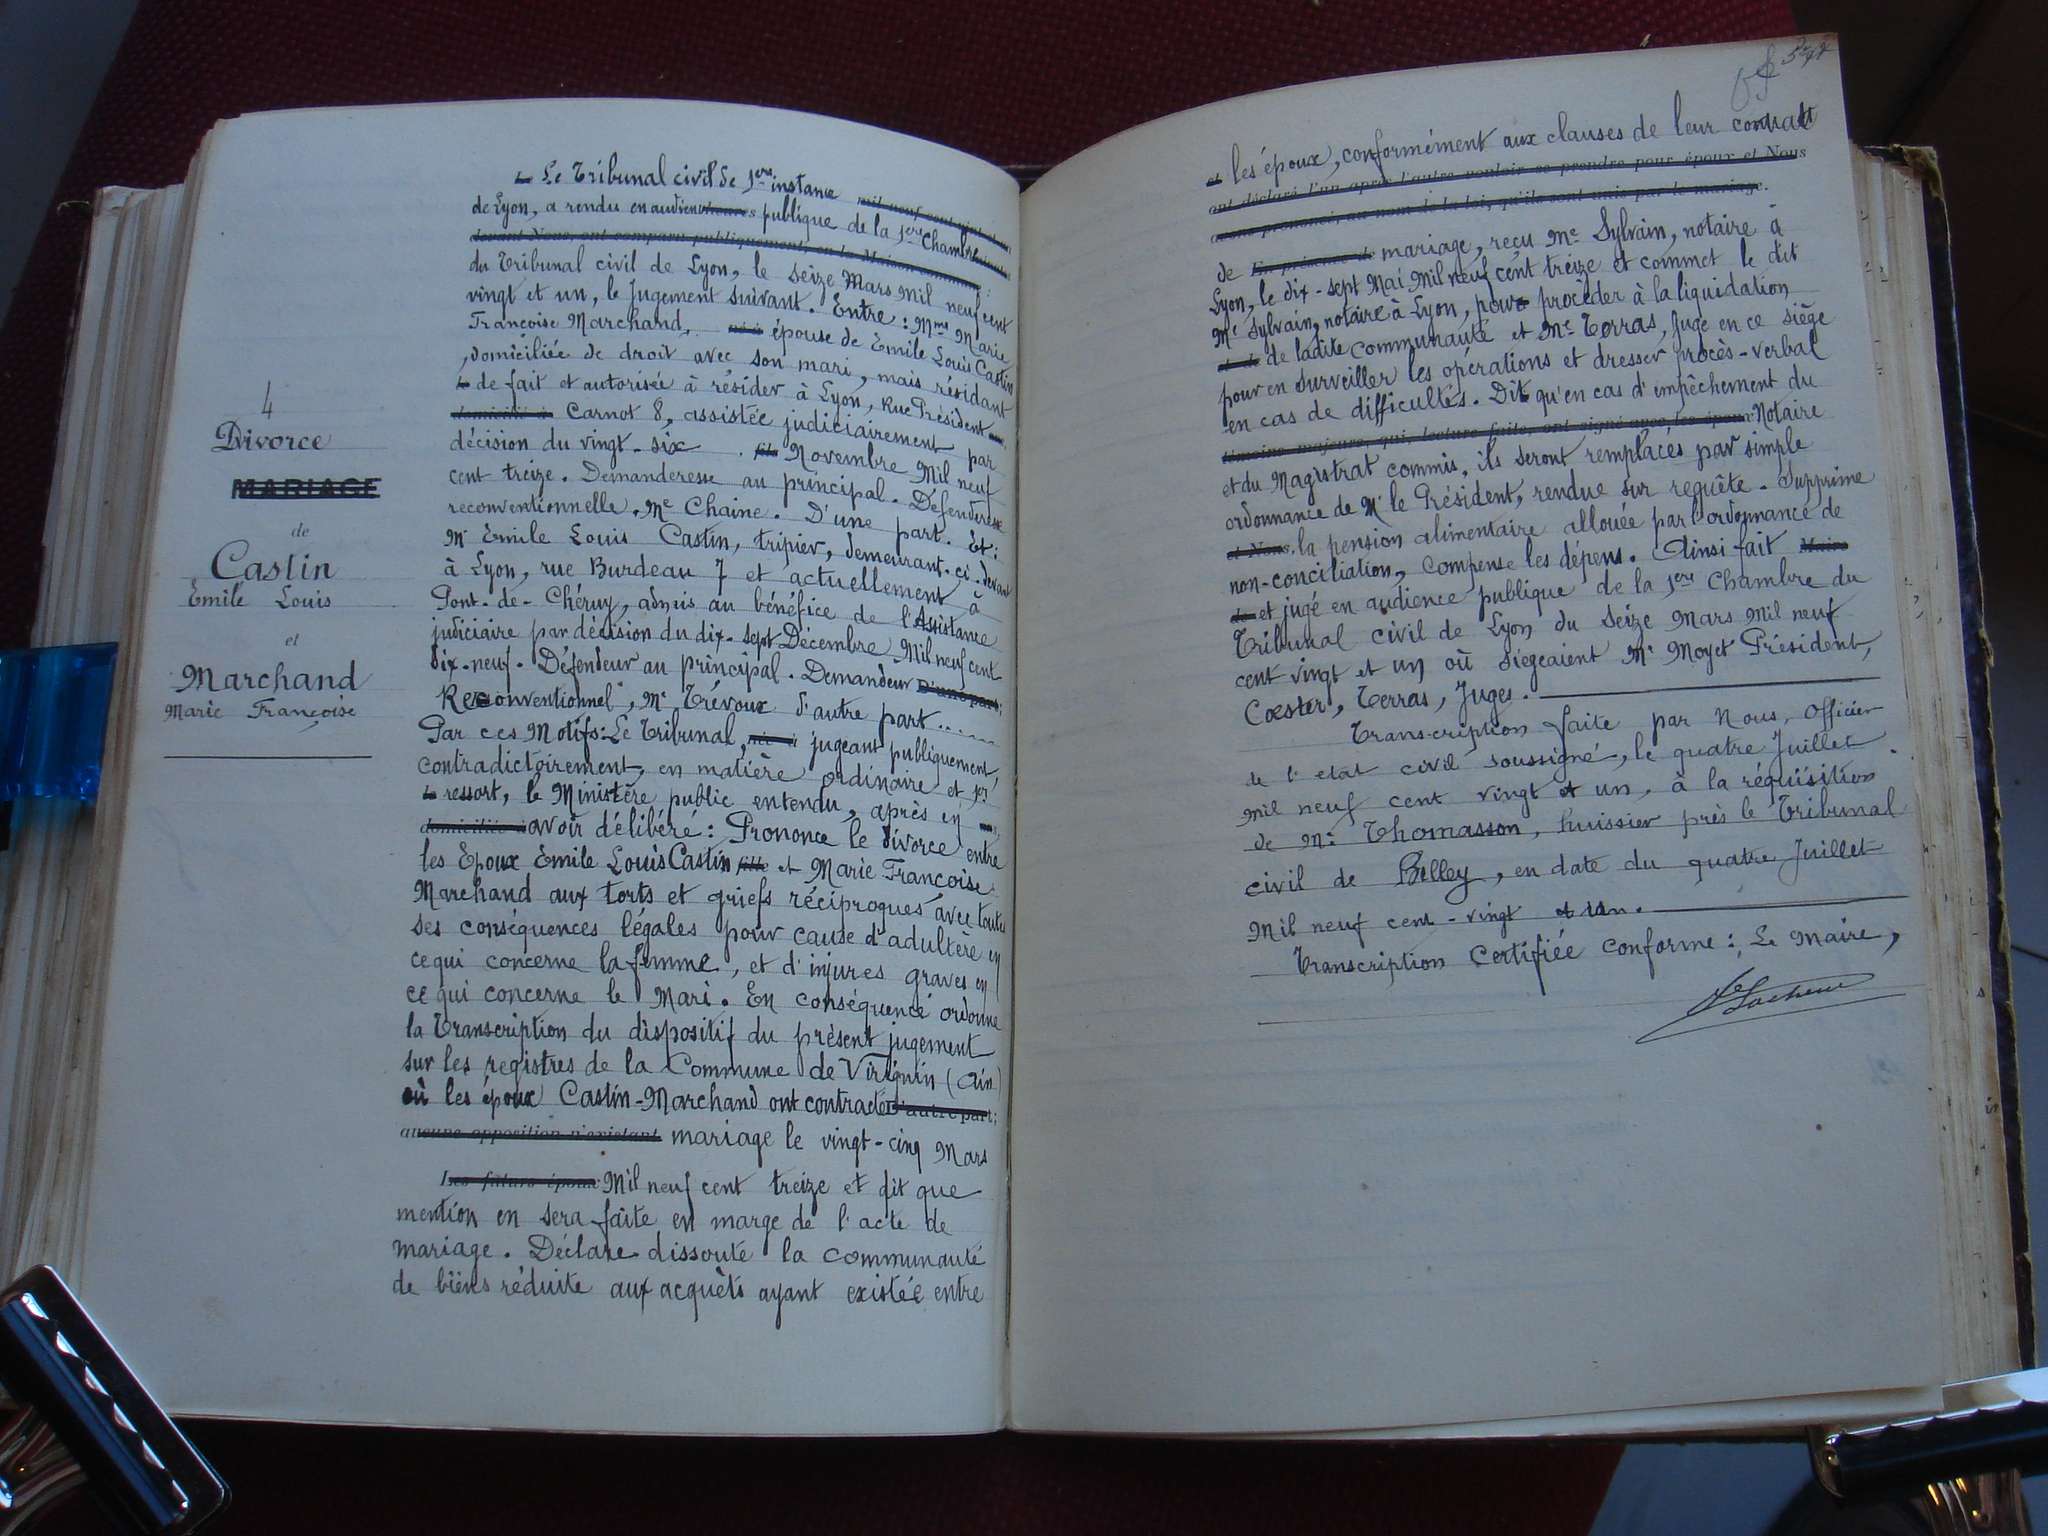 4
Divorce
MARIAGE
de
Castin
Emile Louis
et
Marchand
Marie Françoise
Le Tribunal civil de 1ère instance
de Lyon, a rendu en audience publique de la 1ère Chambre
devant Nous, ont comparu publiquement en la Maison commune
du Tribunal civil de Lyon, le seize Mars Mil neuf cent
vingt et un, le Jugement suivant. Entre : Mme Marie
Françoise Marchand, épouse de Emile Louis Castin
, domiciliée de droit avec son mari, mais résidant
de fait et autorisée à résider à Lyon, Rue Président
Carnot 8, assistée judiciairement par
décision du vingt-six Novembre Mil neuf
cent treize. Demanderesse au principal. Défenderesse
reconventionnelle. Me Chaine. D'une part. Et :
Mr Emile Louis Castin, tripier, demeurant ci-devant
à Lyon, rue Burdeau 7 et actuellement à
Pont-de-Chéruy, admis au bénéfice de l'Assistance
judiciaire par décision du dix-sept Décembre Mil neuf cent
dix-neuf. Défendeur au principal. Demandeur D'une part;
Reconventionnel, Me Trévoux d'autre part.....
Par ces Motifs : Le Tribunal, jugeant publiquement,
contradictoirement, en matière ordinaire et 1er
ressort, le Ministère public entendu, après en
domiciliée à avoir délibéré : Prononce le divorce entre
les Epoux Emile Louis Castin fille et Marie Françoise
Marchand aux torts et griefs réciproques avec toutes
ses conséquences légales pour cause d'adultère en
ce qui concerne la femme, et d'injures graves en
ce qui concerne le Mari. En conséquence ordonne
la Transcription du dispositif du présent jugement
sur les registres de la Commune de Virignin (Ain)
où les époux Castin-Marchand ont contracté d'autre part;
aucune opposition n'existant mariage le vingt-cinq Mars
Les futurs époux Mil neuf cent treize et dit que
mention en sera faite en marge de l'acte de
mariage. Déclare dissoute la communauté
de biens réduite aux acquêts ayant existée entre
et les époux, conformément aux clauses de leur contrat
ont déclaré l'un après l'autre vouloir se prendre pour époux et Nous
avons prononcé, au nom de la loi, qu'ils sont unis par le mariage.
de En présence de mariage, reçu Me Sylvain, notaire à
Lyon, le dix-sept Mai Mil neuf cent treize et commet le dit
Me Sylvain, notaire à Lyon, pour procéder à la liquidation
de ladite communauté et Mr Terras, Juge en ce siège
pour en surveiller les opérations et dresser procès-verbal
en cas de difficultés. Dit qu'en cas d'empêchement du
témoins majeurs, qui, lecture faite, ont signé avec les époux Notaire
et du Magistrat commis, ils seront remplacés par simple
ordonnance de Mr le Président, rendue sur requête. Supprime
et Nous la pension alimentaire allouée par l'ordonnance de
non-conciliation, compense les dépens. Ainsi fait Maire
de et jugé en audience publique de la 1ère Chambre du
Tribunal civil de Lyon du seize Mars Mil neuf
cent vingt et un où siégeaient Mr Moyet Président,
Cœster, Terras, Juges.
Transcription faite par Nous, Officier
de l'etat civil soussigné, le quatre Juillet
mil neuf cent vingt et un, à la réquisition
de Mr Thomasson, huissier près le Tribunal
civil de Belley, en date du quatre Juillet
Mil neuf cent-vingt et un.
Transcription Certifiée conforme : Le Maire,